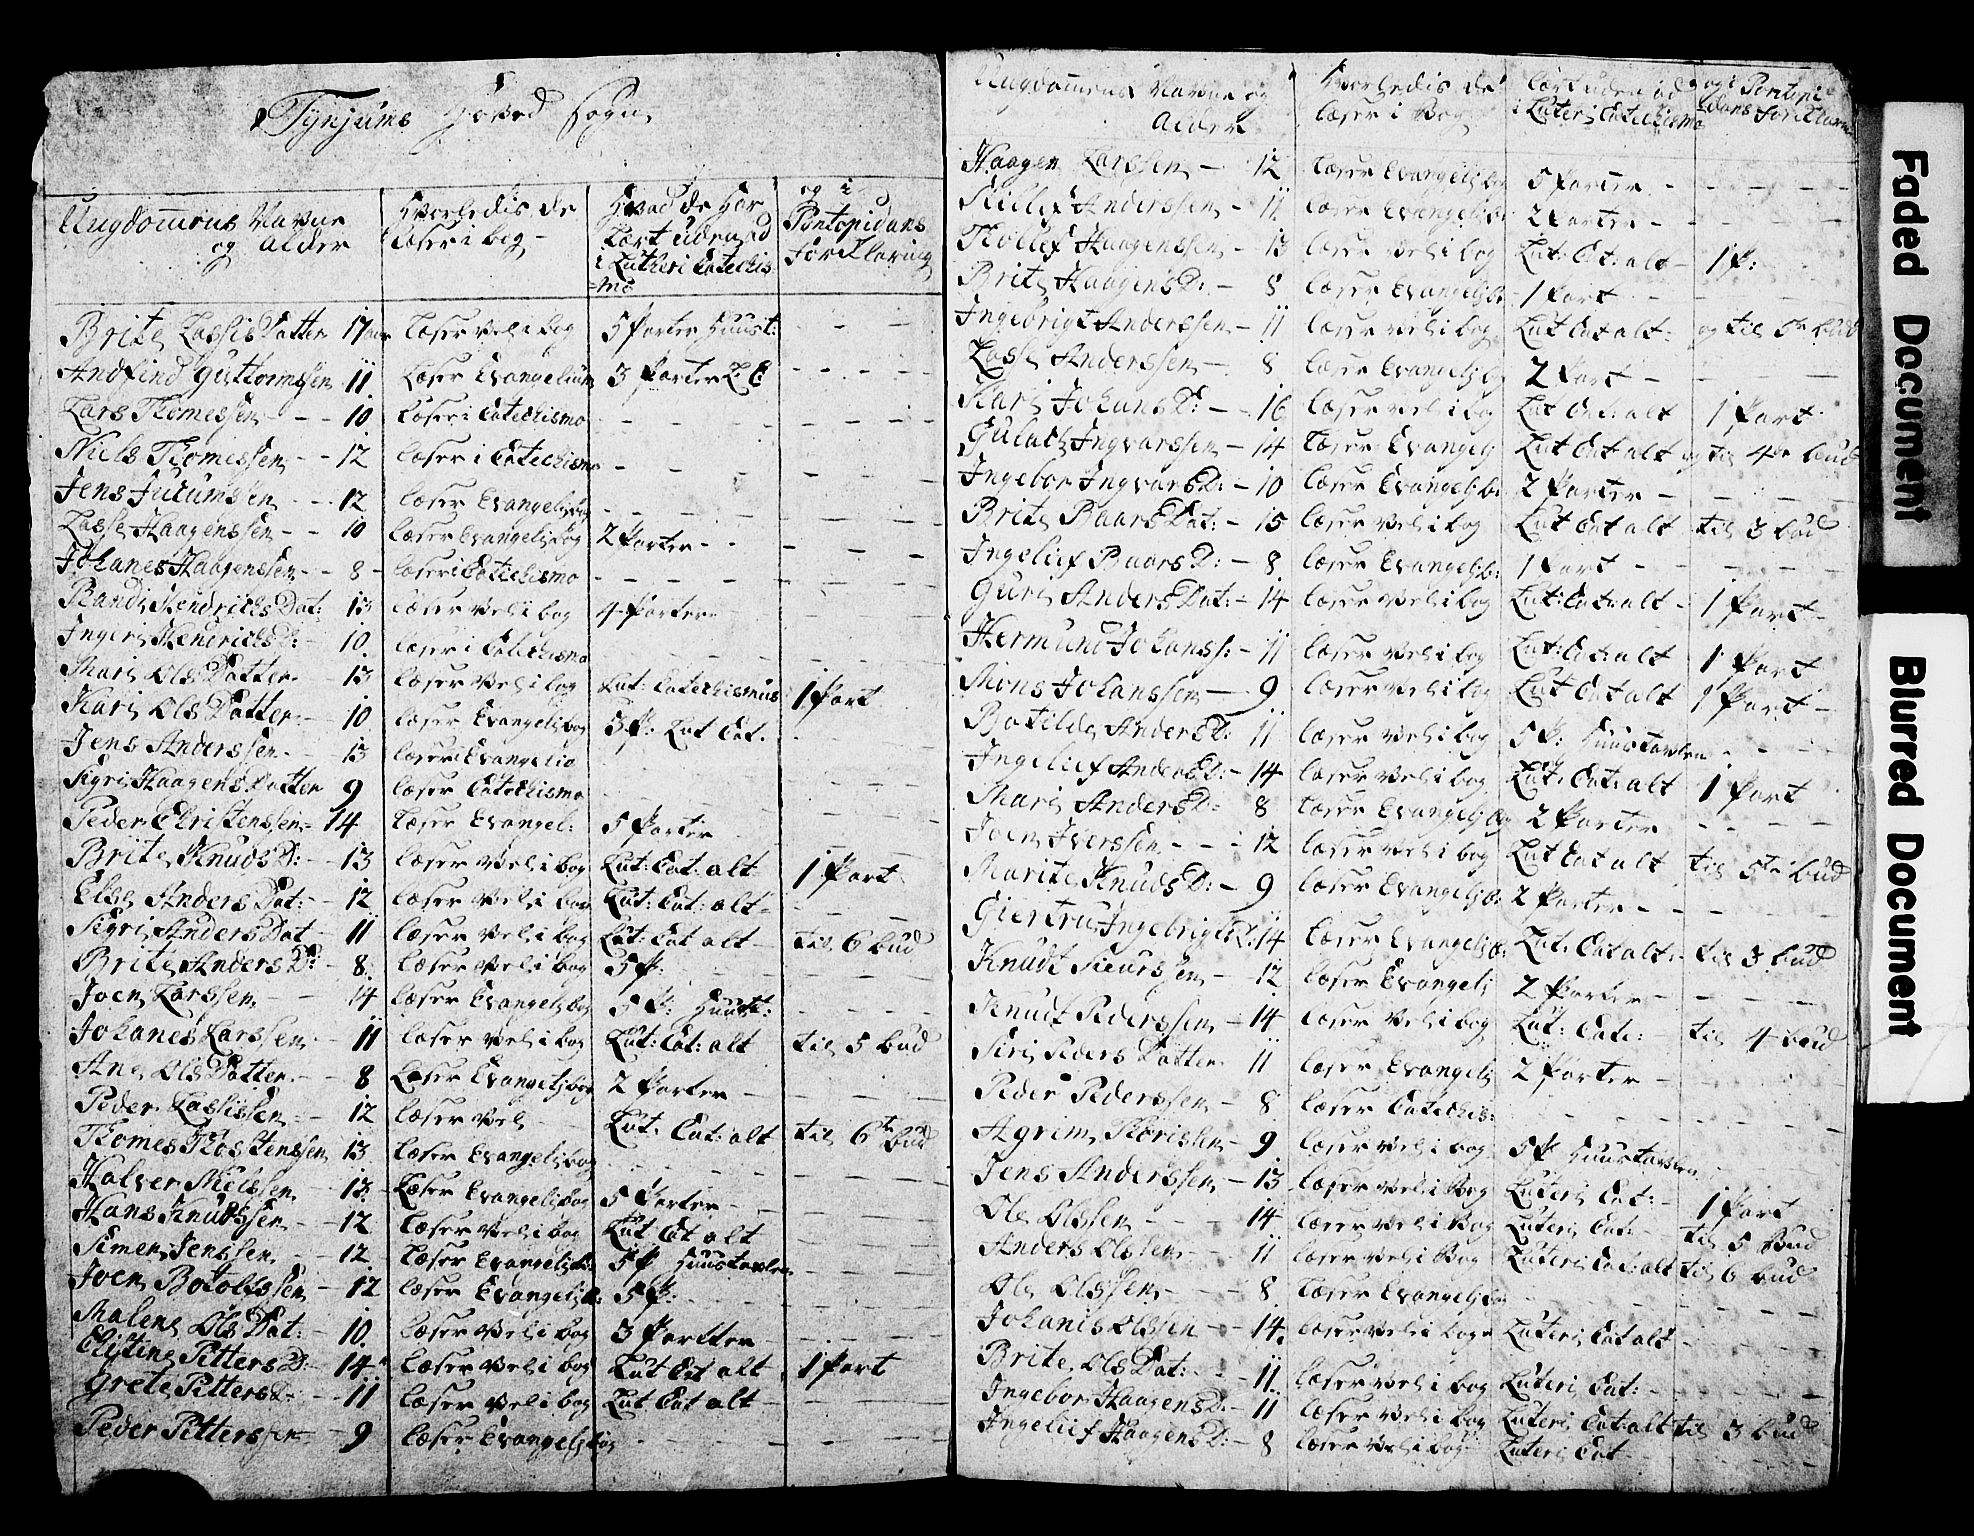 Tynjums Hoved Sogn
Ungdommens Navne og Alder | Hvorledis de Læser i bog - | Hvad de Har Lært uden ad i Lutheri Catechismo | og i Pontopidans Forklaring
Brite Lassis Datter 17 aar | Læser vel i bog | 5 Parter Huust: | - -
Andfind Guttormssen 11 | Læser Evangelium | 3 Parter L C | - - - -
Lars Thomessen - - 10 | Læser i Catechismo | - - - | - - -
Niels Thomessen - - 12 | læser i Catechismo | - - - | - - -
Jens - - 12 | læser Evangelij bog | - - - | - - -
Lasse Haagenssen - - 10 | læser Evangelij bog | 2 Parter - - | - - -
Johanes Haagenssen - - 8 - | læser i Catechismo | - - - | - - -
Randi Hendrichs Dat: 13 | læser vel i bog | 4 Parter | - - -
Ingeri Hendrichs D: 10 | læser i Catechismo | - - - | - - -
Mari Ols Datter - 13 | læser vel i bog | Lut: Catechismus | 1 Part
Kari Ols Datter - 10 | læser Evangeli bog | 3 P: Lut Cat. | - - -
Jens Anderssen - 13 | læser i Evangelio | - - - | - - -
Sigri Haagens Datter 9 | læser Catechismo | - - - | - - -
Peder Christenssen - 14 | Læser Evangel: | 5 Parter | - - -
Brite Knuds D: - 13 | læser vel i bog | Lut: Cat: alt | 1 Part
Else Anders Dat: - 12 | læser vel i bog | Lut: Cat: alt - | - - -
Sigri Anders Dat - 11 | læser vel i bog | Lut: Cat alt - | til 6 bud
Brite Anders D: - 8 | læser vel i bog | 5 P: | - - -
Joen Larssen - - 14 | læser Evangelij bog | 5 P: Huust: | - - -
Johanes Larssen - 11 | læser vel i bog | Lut: Cat: alt | til 5 bud
Ane Ols Datter - 8 | Læser Evangelij bog | 2 Parter - | - - -
Peder Lassissen - 12 | læser vel - | Lut: Cat: alt | til 6te bud
Thomes Thostenssen 13 | læser Evangelij bog | - - - | - - -
Halver 13 | Læser Evangelij bog | 5 Parter - | - - -
Hans Knudssen - - 12 | læser vel i bog | Lut Cat alt | - - -
Simen Jenssen - - 12 | Læser Evangelij b: | 5 P Huustavlen | - - -
Joen Botolfssen - 12 | læser Evangelij b: | 5 P: | - - -
Malene Ols Dat: - 10 | læser vel i bog | 3 Partter - | - - -
Clistine Pitters D: 14 | læser vel i bog | Lut Cat alt | 1 Part
Grete Pitters D: - 11 | læser vel i bog | Lut Cat alt - | - - -
Peder Pitterssen - 9 | læser Evangelij bog | - - - | - - -
Ungdommens Navne og Alder | Hvorledis de læser i Bog | Lært uden ad i Luteri Catechismo | og i Pontopidans Forklaring
Haagen Larssen - 12 | Læser Evangelij bog | 5 Parter - | - - -
Anderssen - 11 | læser Evangelij b: | 2 Parter - | - - -
Tollef Haagenssen - 13 | læser vel i bog | Lut: Cat: alt - | 1 P:
Brite Haagens D: - 8 | læser Evangelij b: | 1 Part | - - -
Ingebrigt Anderssen - 11 | læser vel i bog | Lut Cat alt - | og til 5te bud
Lasse Anderssen - 8 | læser Evangelij bog | 2 Part - | - - -
Kari Johans D: - - 16 | læser vel i bog | Lut Cat: alt | 1 Part
Gulach Ingvarssen - 14 | Læser Evangelij | Lut Cat alt | og til 4de bud
Ingebor Ingvars D: - 10 | læser Evangelij b: | 2 Parter - | - - -
Brite Baars Dat: - 15 | læser vel i bog | Lut Cat alt | til 3 bud
Ingelief Baars D: - 8 | læser Evangelij b: | 1 Part - | - - -
Guri Anders Dat: - 14 | læser vel i bog | Lut: Cat: alt - | 1 Part -
Hermund Johanss: - 11 | læser vel i bog | Lut: Cat: alt | 1 Part
Mons Johanssen - 9 | læser vel i bog | Lut Cat alt | 1 Part -
Botilde Anders D: 11 | læser vel i bog | 5 P: Huustavlen | - - -
Ingelief Anders D: - 14 | læser vel i bog | Lut: Cat: alt | 1 Part
Mari Anders D: 8 | Læser Evangelij bog | 2 Parter | - - -
Joen Iverssen - - - 12 | læser vel i bog | Lut Cat alt | til 5te bud
Marite Knuds D: - 9 | læser Evangelij b: | 2 Parter - | - - -
Giertru Ingebrigts D: 14 | Læser Evangelij b: | Lut: Cat alt - | til 3 bud
Knudt Sieurssen - 12 | læser Evangelij | 2 Parter - | - - -
Knudt Pederssen - 14 | læser vel i bog | Lut: Cat: | til 4 bud
Siri Peders Datter 11 | læser Evangelij | 2 Parter - | - - -
Peder Pederssen - 8 | læser Catechis: | - - - | - - -
Agrim - 9 | læser vel i bog | 5 P Huustavlen | - - -
Jens Anderssen - 13 | læser vel i Bog | Luteri Cat: - | 1 Part
Ole Olssen - - 14 | læser vel i Bog | Luteri Cat: - | til 5 Bud
Anders Olssen - - 11 | læser vel i Bog | Luteri Cat: alt | til 6 bud
Ole Olssen - - 8 | Læser Evangelij bog | - - - | - - -
Johanis Olssen - - 14 | læser vel i bog - | Luteri Cat alt - | - - -
Brite Ols Dat: - - 11 | læser vel i bog | Luteri Cat: - | - - -
Ingebor Haagens D: - 11 | læser vel i bog | Luteri Cat: alt | til 3 bud
Ingelief Haagens D: - 8 | læser vel i bog | Luteri Cat - | - - -
Faded Document
Blurred Document